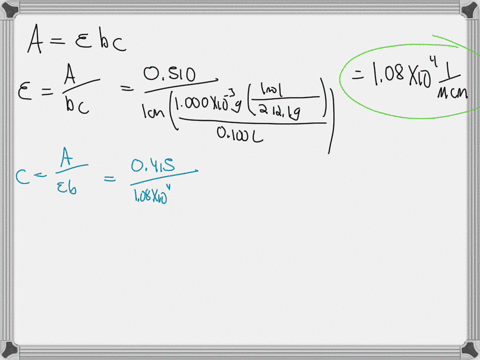 A = εbc
ε = A / bc = 0.510 / 1cm (1.000×10⁻³ g (1mol / 212.1 g) / 0.100L) = 1.08×10⁴ 1 / M cm
C = A / εb = 0.415 / 1.08×10⁴